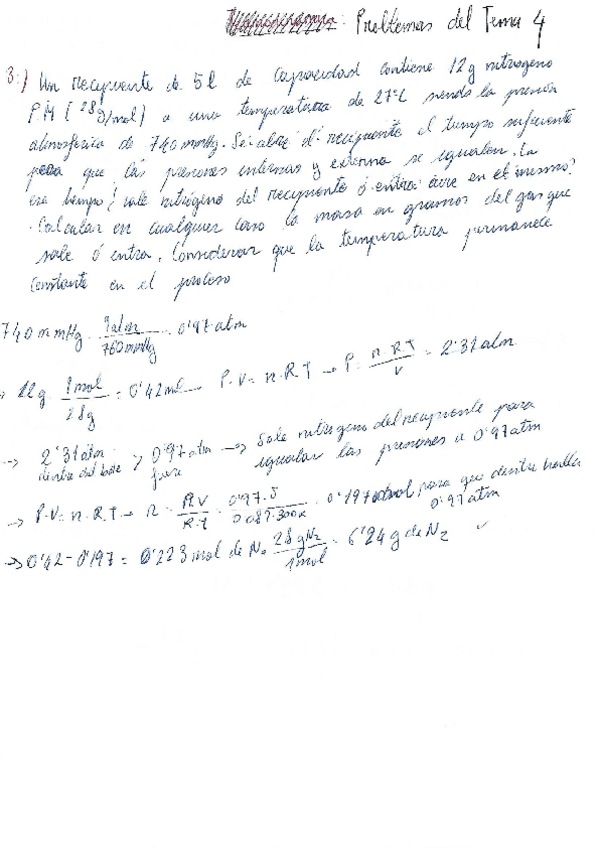 Problemas del Tema 4
3:) Un recipiente de 5l de capacidad contiene 12g nitrogeno
P.M (28g/mol) a una temperatura de 27ºC siendo la presión
atmosferica de 740mmHg. Se abre el recipiente el tiempo suficiente
para que las presiones internas y externa se igualen. En
ese tiempo ¿sale nitrógeno del recipiente ó entra aire en el mismo?
Calcular en cualquier caso la masa en gramos del gas que
sale ó entra. Considerar que la temperatura permanece
constante en el proceso
740mmHg · 1atm / 760mmHg = 0'97 atm
→ 12g · 1mol / 28g = 0'42 mol → P·V = n·R·T → P = n·R·T / V = 2'31 atm
→ 2'31 atm dentro del > 0'97 atm fuera → Sale nitrógeno del recipiente para
igualar las presiones a 0'97 atm
→ P·V = n·R·T → n = P·V / R·T = 0'97·5 / 0'082·300K = 0'197 mol para que dentro
0'97 atm
→ 0'42 - 0'197 = 0'223 mol de N₂ · 28 g N₂ / 1mol = 6'24 g de N₂ ✓